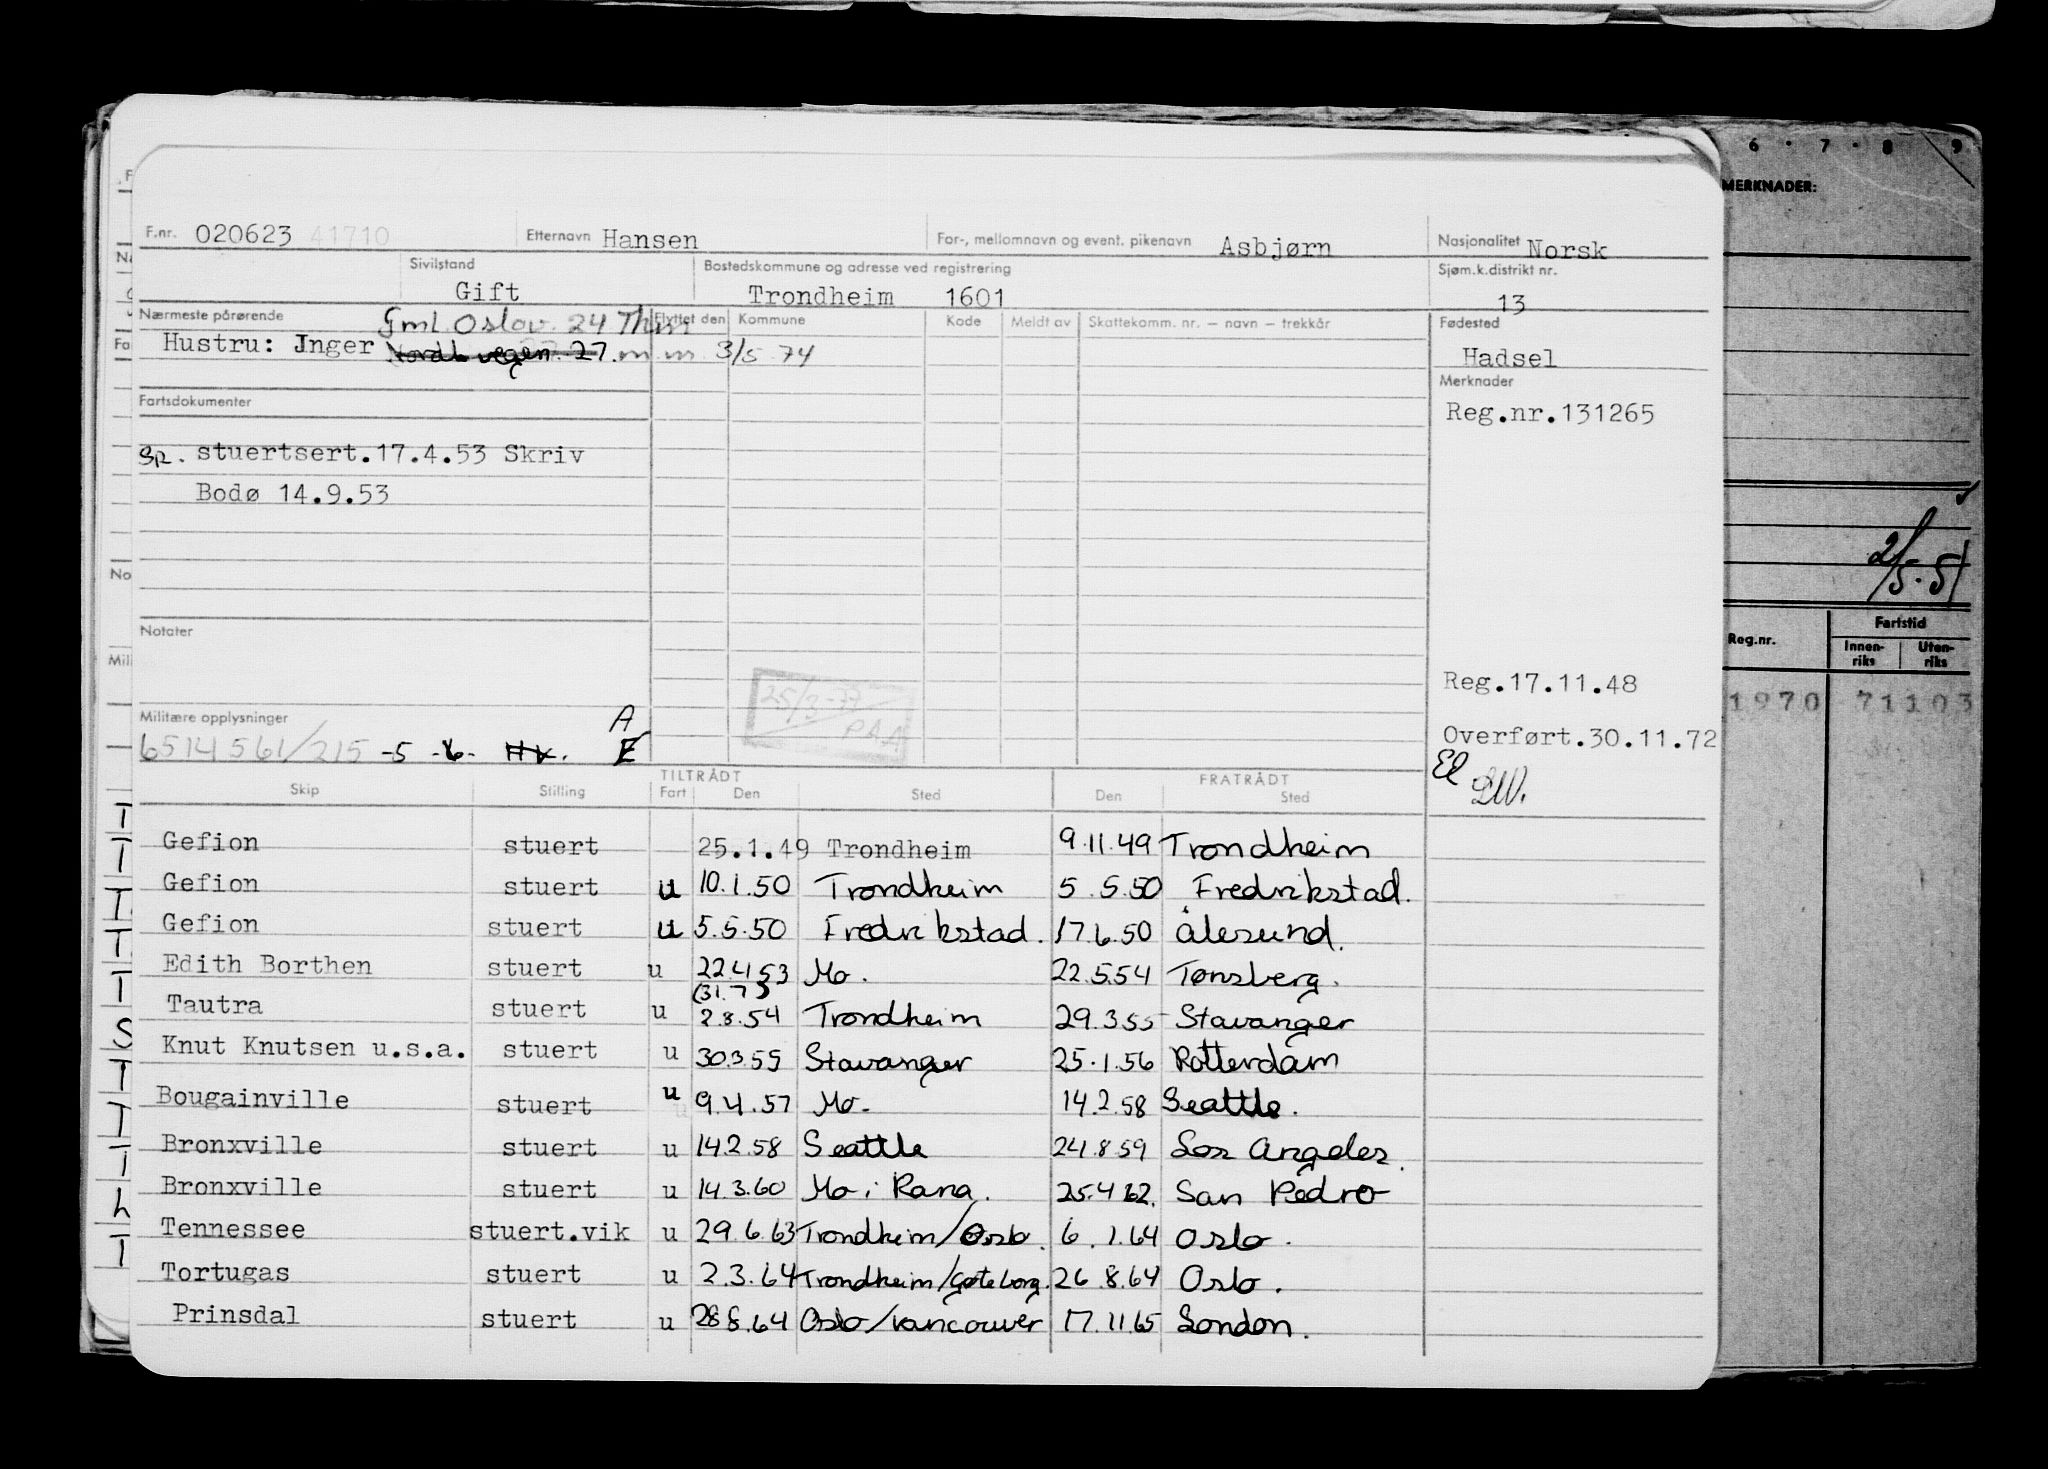 6 · 7 · 8 9
MERKNADER:
F.nr. 020623 41710 Etternavn Hansen For-, mellomnavn og event. pikenavn Asbjørn Nasjonalitet Norsk
Sivilstand Gift Bostedskommune og adresse ved registrering Trondheim 1601 Sjøm.k.distrikt nr. 13
Nærmeste pårørende Gml. Oslov. 24 Thm Flyttet den Kommune Kode Meldt av Skattekomm. nr. – navn – trekkår Fødested
Hustru: Inger Nordl. vegen 27. m.m. 3/5 74 Hadsel
Fartsdokumenter Merknader
Reg.nr.131265
SR. stuertsert.17.4.53 Skriv
Bodø 14.9.53
2/5-51
Notater
Reg.nr. Fartstid
Innen-riks Uten-riks
Reg.17.11.48
1970 71103
25/3-77
PAA
Militære opplysninger A
6514561/215 -5 -6- HV. E
Overført.30.11.72
El
Skip Stilling TILTRÅDT Fart Den Sted FRATRÅDT Den Sted
Gefion stuert 25.1.49 Trondheim 9.11.49 Trondheim
Gefion stuert u 10.1.50 Trondheim 5.5.50 Fredrikstad.
Gefion stuert u 5.5.50 Fredrikstad. 17.6.50 Ålesund.
Edith Borthen stuert u 22.4.53 Mo. 22.5.54 Tønsberg.
(31.7)
Tautra stuert u 2.8.54 Trondheim 29.3.55 Stavanger
Knut Knutsen u.s.a. stuert u 30.3.55 Stavanger 25.1.56 Rotterdam
Bougainville stuert u 9.4.57 Mo. 14.2.58 Seattle.
Bronxville stuert u 14.2.58 Seattle 24.8.59 Los Angeles.
Bronxville stuert u 14.3.60 Mo i Rana. 25.4.62. San Pedro
Tennessee stuert.vik u 29.6.63 Trondheim/Oslo. 6.1.64 Oslo.
Tortugas stuert u 2.3.64 Trondheim/Gøteborg. 26.8.64 Oslo.
Prinsdal stuert u 28.8.64 Oslo/Vancouver 17.11.65 London.